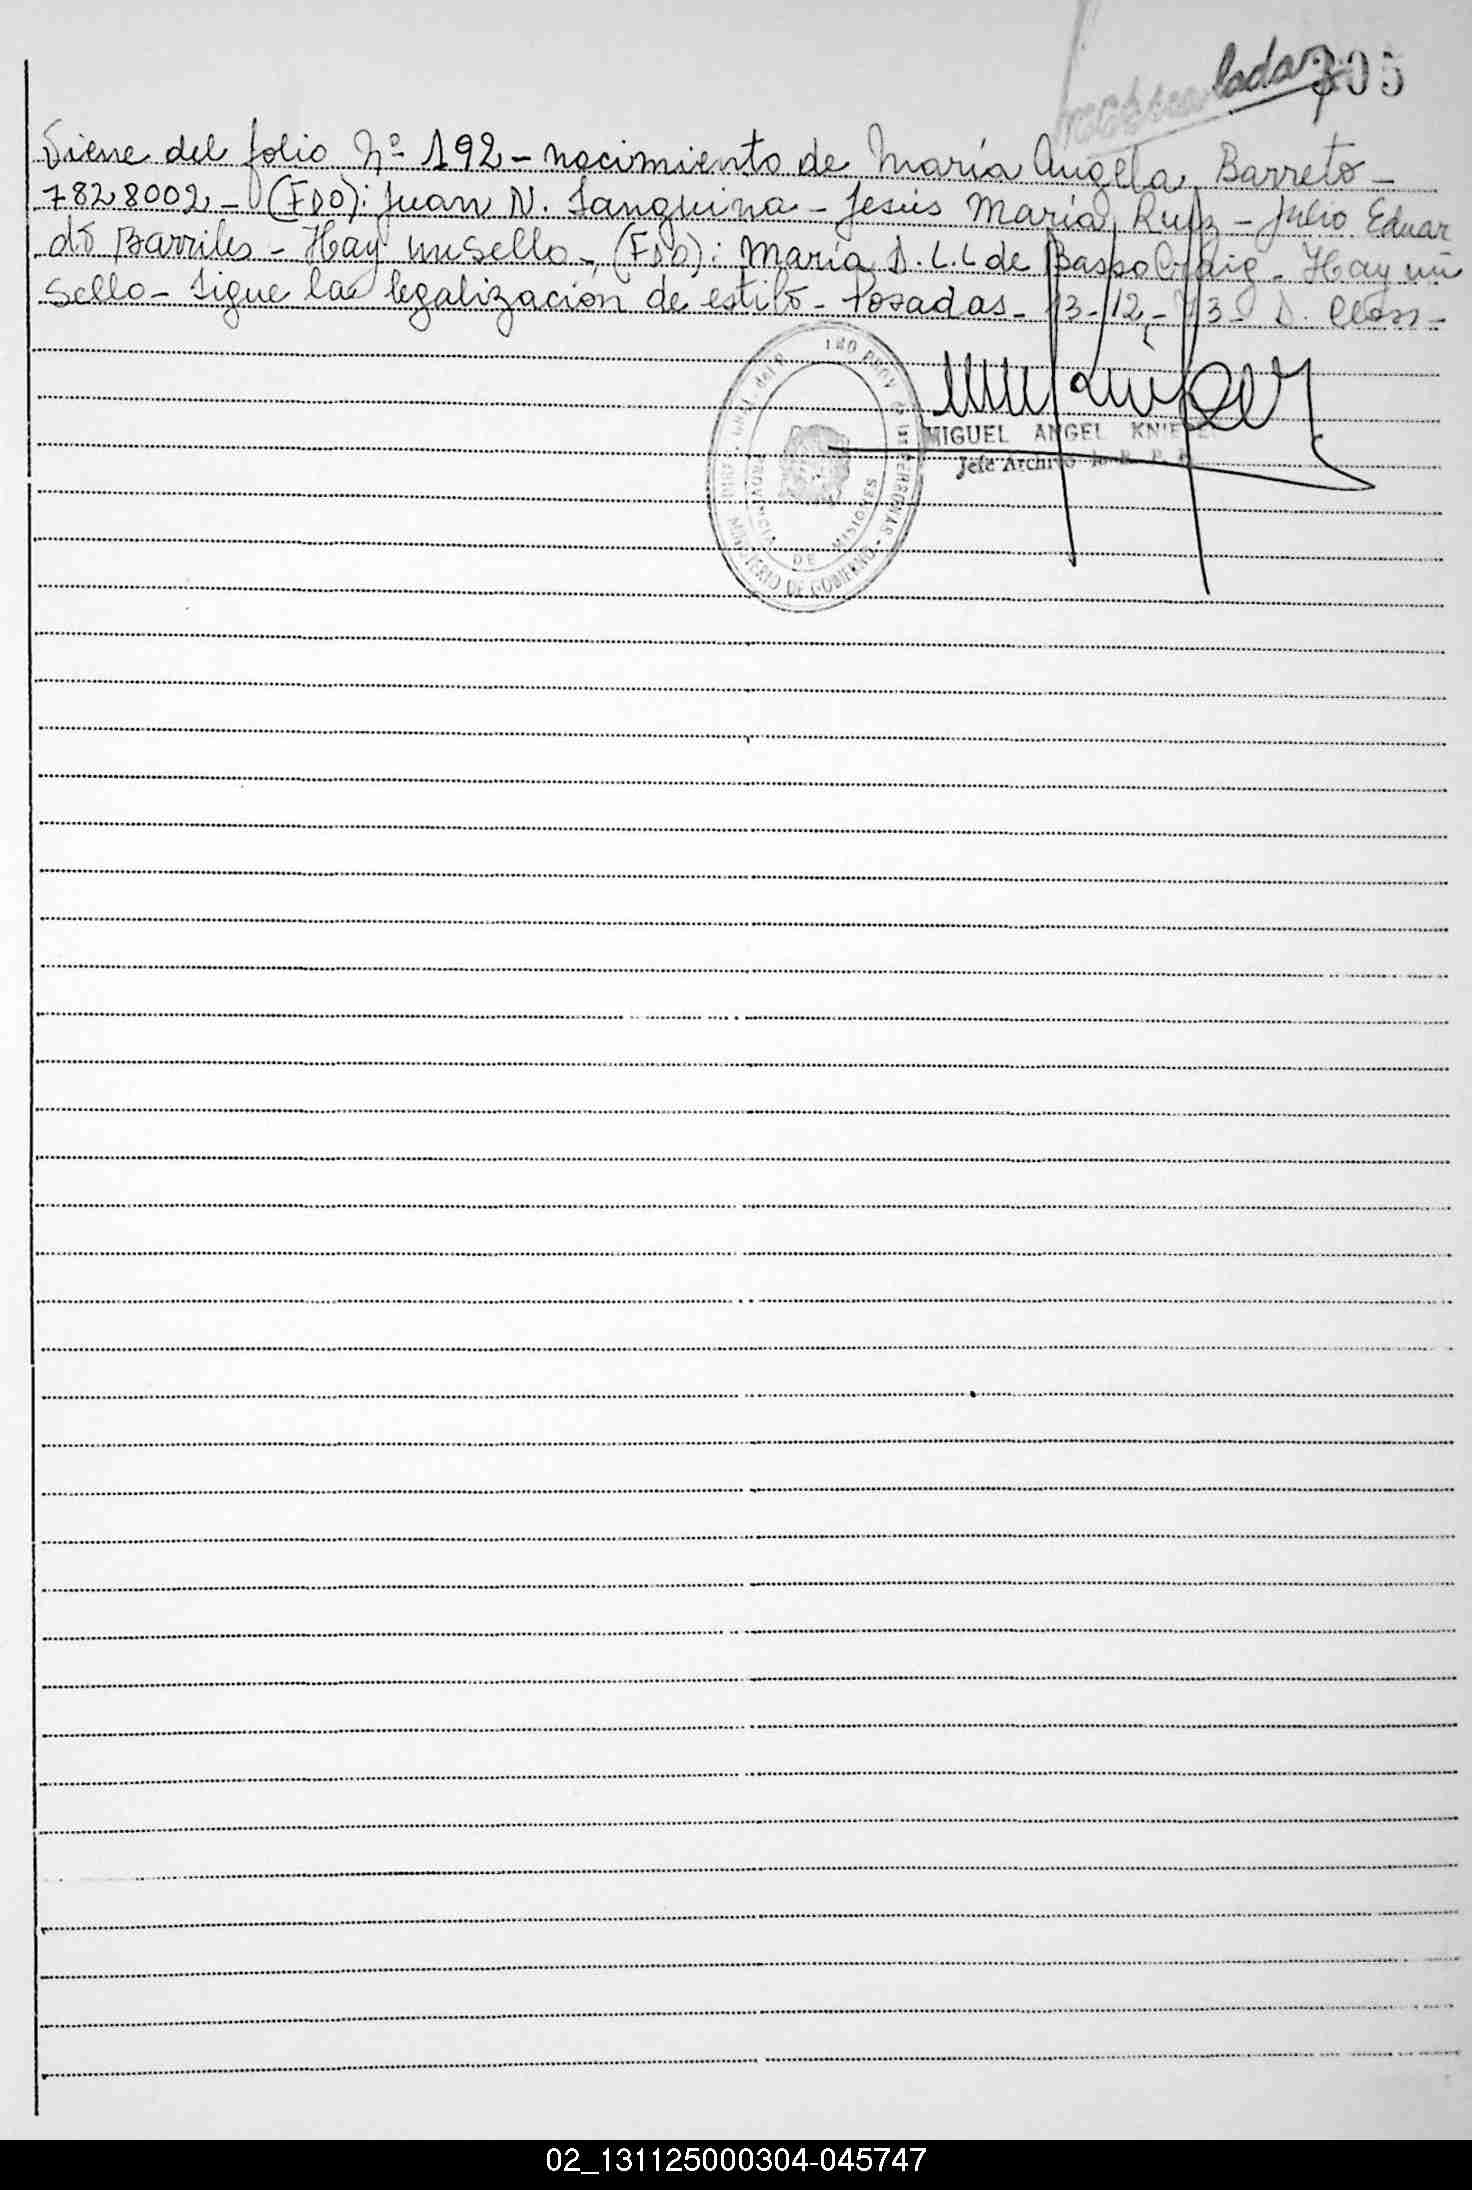 305
Viene del folio Nº 192 - nacimiento de María Angela Barreto -
7828002 - (FDO): Juan N. Sanguina - Jesús María Ruiz - Julio Eduar
do Barriles - Hay un sello - (FDO): María D. L. L de Basso Craig - Hay un
Sello - Sigue la legalización de estilo - Posadas - 13-12-73 - D.
MIGUEL ANGEL
Jefe Archivo
PROVINCIA DE MISIONES
MINISTERIO DE GOBIERNO
02_131125000304-045747